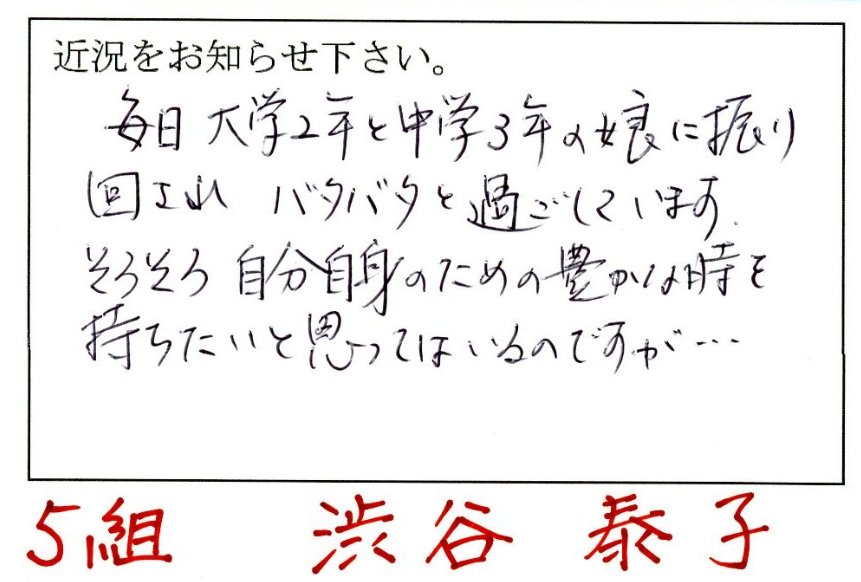 近況をお知らせ下さい。
毎日 大学2年と中学3年の娘に振り
回され バタバタと過ごしています。
そろそろ 自分自身のための豊かな時を
持ちたいと思ってはいるのですが…
5組 渋谷 泰子